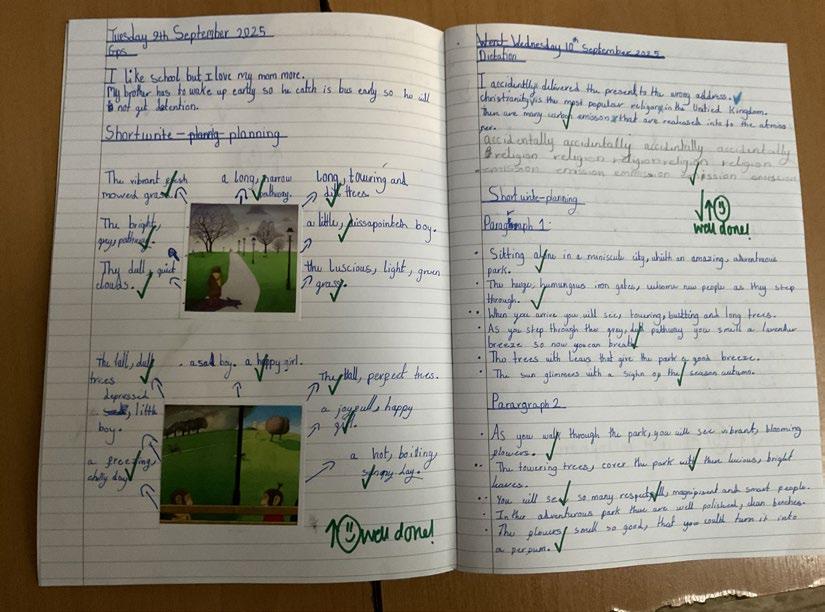 Tuesday 9th September 2025
Gps
I like school but I love my mom more.
My brother has to wake up early so he catch is bus early so he will
not get detention.
Short write - planning
The vibrant fresh
mowed grass.
a long, narrow
pathway.
long, touring and
trees.
The bright,
grey, pathway.
a little, boy.
The dull, quiet
clouds.
the luscious, light, green
grass.
The tall, dull
trees
a sad boy.
a happy girl.
The tall, perfect trees.
depressed
little
boy.
a joyfull, happy
girl.
a freezing,
chilly day
a hot, boiling,
day.
well done!
Wednesday 10th September 2025
Dictation
I accidently delivered the present to the wrong address.
christranity is the most popular religon in the United Kingdom.
There are many carbon emisson that are realeased into to the atmoss
per.
accidentally accidentally accidentally accidentally
religion religion religion religion religion
emission emission emission emission emission
well done!
Short write - planning
Paragraph 1:
Sitting alone in a miniscule city, whith an amazing, adventurous
park.
The huge, humungous iron gates, welcome new people as they step
through.
When you arrive you will see, towering, bustling and long trees.
As you step through the grey, pathway you smell a lavender
breeze so now you can breath.
Tho trees with leavs that give the park a good breeze.
The sun glimmers with a sighn of the season autumn.
Parargraph 2
As you walk through the park, you will see vibrant, blooming
flowers.
The towering trees, cover the park with their lucious, bright
leaves.
You will see so many respectfull, magnificent and smart people.
In ther adventurous park there are well polished, clean benches.
The flowers smell so good, that you could turn it into
a perfum.